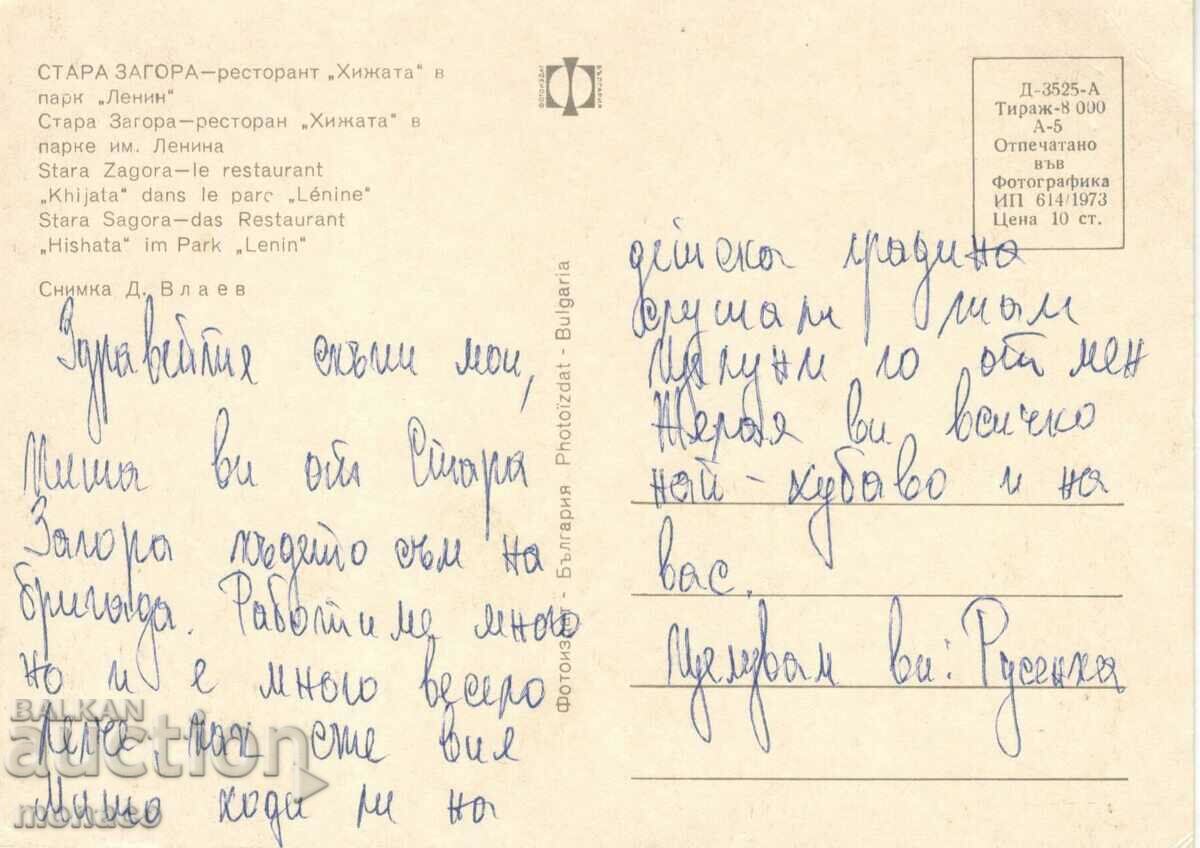 СТАРА ЗАГОРА—ресторант „Хижата“ в
парк „Ленин“
Стара Загора—ресторан „Хижата“ в
парке им. Ленина
Stara Zagora—le restaurant
„Khijata“ dans le parc „Lénine“
Stara Sagora—das Restaurant
„Hishata“ im Park „Lenin“
Снимка Д. Влаев
ФОТОИЗДАТ
БЪЛГАРИЯ
Д-3525-А
Тираж-8 000
А-5
Отпечатано
във
Фотографика
ИП 614/1973
Цена 10 ст.
Фотоиздат - България Photoïzdat - Bulgaria
Здравейте скъпи мои,
Пиша ви от Стара
Загора където съм на
бригада. Работиме много
но и е много весело
как сте вие
Мишо ходи ли на
детска градина
слушали там
Целуни го от мен
Желая ви всичко
най-хубаво и на
вас.
Целувам ви: Русенка
BALKAN
auction
monaco